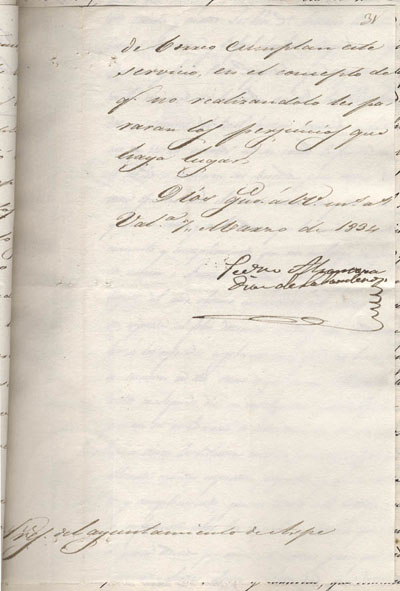 31
de como cumplan este
servicio, en el concepto de
q.e no realizandolo les pa-
raran los perjuicios que
haya lugar.
Dios gue. á V.S. m.s a.s
Val.a 7, Marzo de 1834
Pedro
Sres. del ayuntamiento de Aspe